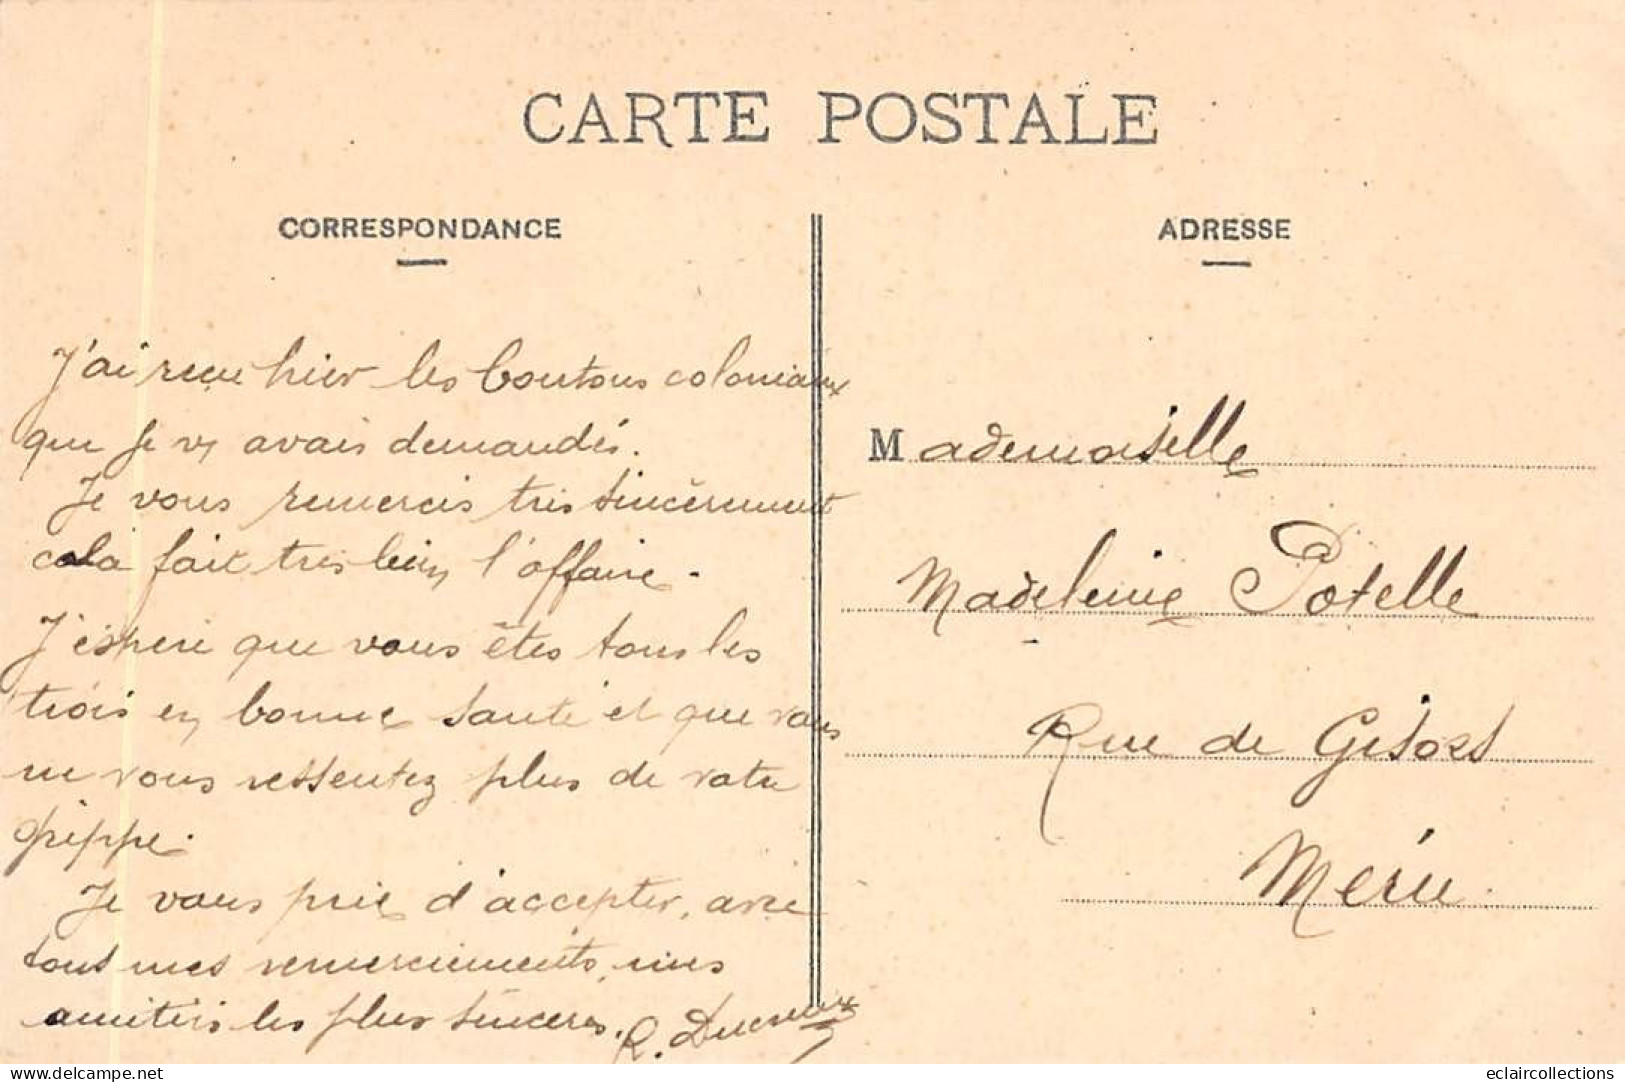 CARTE POSTALE
CORRESPONDANCE
J'ai reçu hier les boutons coloniaux
que je vs avais demandés.
Je vous remercis très sincèrement
cela fait très bien l'affaire.
J'espère que vous êtes tous les
trois en bonne santé et que vous
ne vous ressentez plus de votre
grippe.
Je vous prie d'accepter, avec
tous mes remerciements, mes
amitiés les plus sincères.
R. Ducreux
ADRESSE
Mademoiselle
Madeleine Potelle
Rue de Gisors
Méru
delcampe.net
eclaircollections